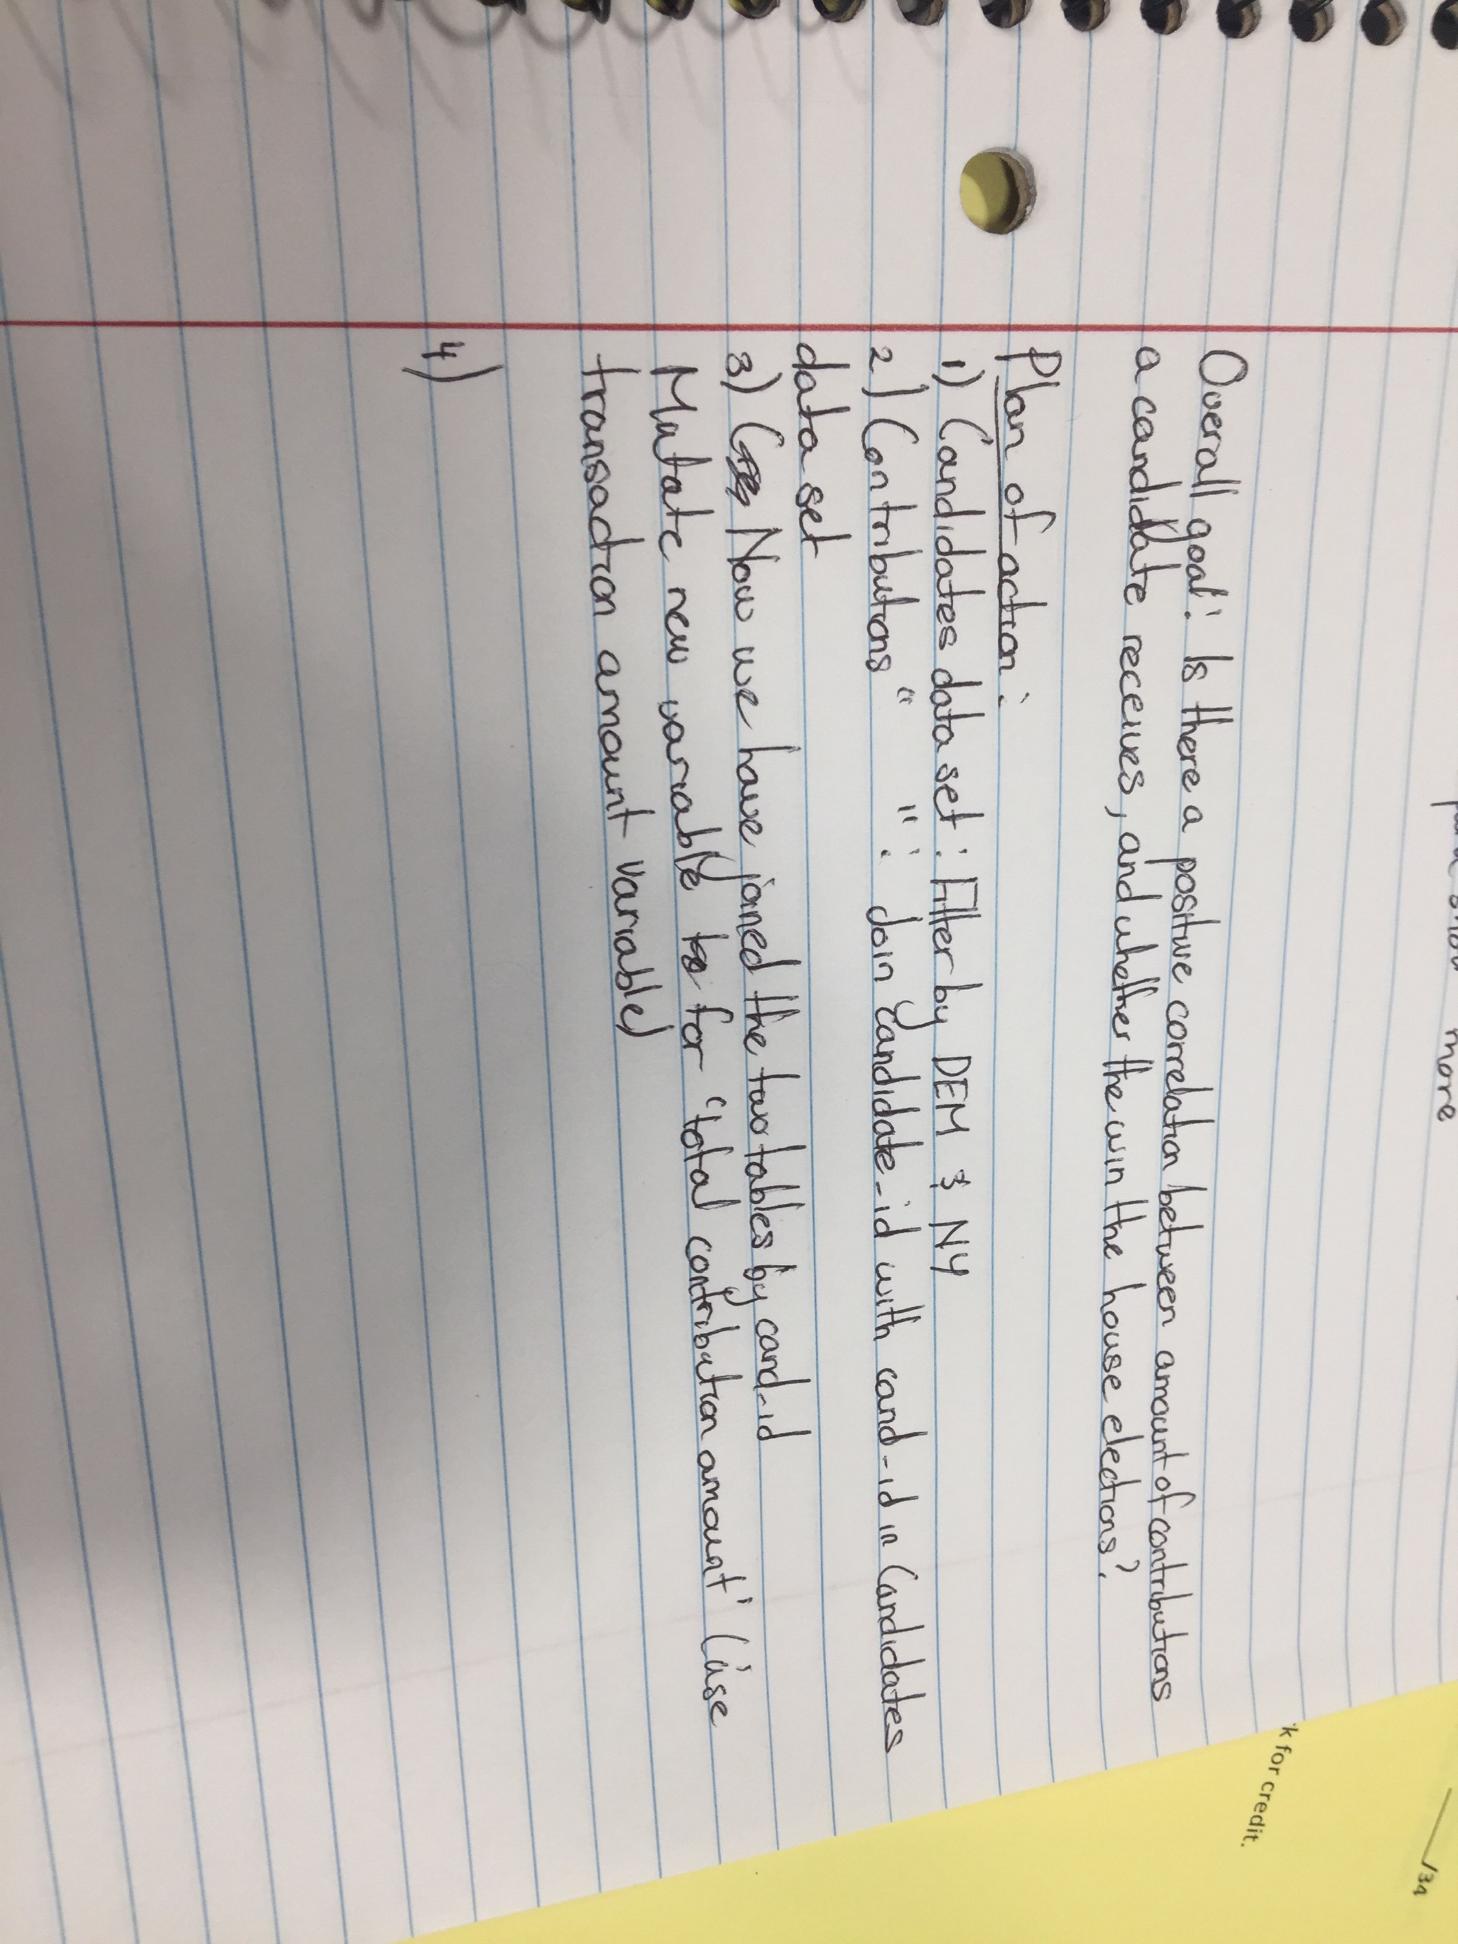 more
/34
k for credit.
Overall goal: Is there a positive correlation between amount of contributions
a candidate receives, and whether the win the house elections?
Plan of action:
1) Candidates data set: Filter by DEM & NY
2) Contributions " ": Join candidate-id with cand-id in Candidates
data set
3) Now we have joined the two tables by cand-id
Mutate new variable for 'total contribution amount' (use
transaction amount variable)
4)